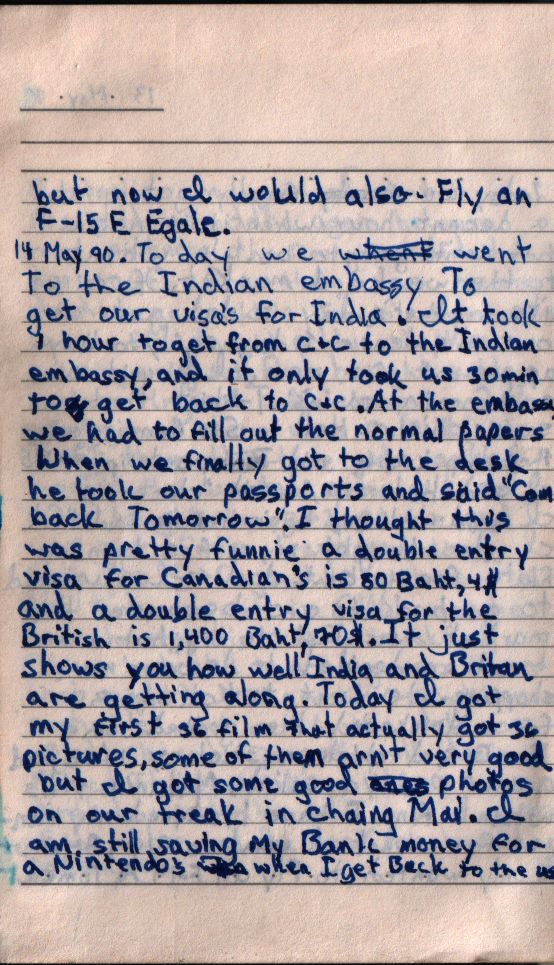 but now I would also. Fly an
F-15 E Egale.
14 May 90. To day we went
To the Indian embassy To
get our visa's for India. It took
1 hour to get from C+C to the Indian
embassy, and it only took us 30 min
to get back to C+C. At the embassy
we had to fill out the normal papers
When we finally got to the desk
he took our passports and said "Com
back Tomorrow". I thought this
was pretty funnie a double entry
visa for Canadian's is 80 Baht, 4$
and a double entry visa for the
British is 1,400 Baht, 70$. It just
shows you how well India and Britan
are getting along. Today I got
my first 36 film that actually got 36
pictures, some of them arn't very good
but I got some good photos
on our treak in Chaing Mai. I
am still saving My Bank money for
a Nintendo's when I get Back to the us